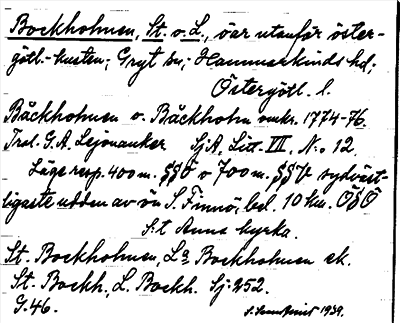 Bockholmen, St. o. L., öar utanför öster-
götl.-kusten; Gryt sn; Hammarkinds hd;
Östergötl. l.
Båckholmen o. Båckholm omkr. 1774-76.
Trol. G.A. Lejonanker SjA, Litt. VII. No 12.
Läge resp. 400 m. §§Ö o 700 m. §§V sydväst-
ligaste udden av ön S. Finnö, bel. 10 km. ÖSÖ
S:t Anna kyrka.
St. Bockholmen, La Bockholmen ek.
St. Bockh., L. Bockh. Sj: 252.
G. 46.
1939.